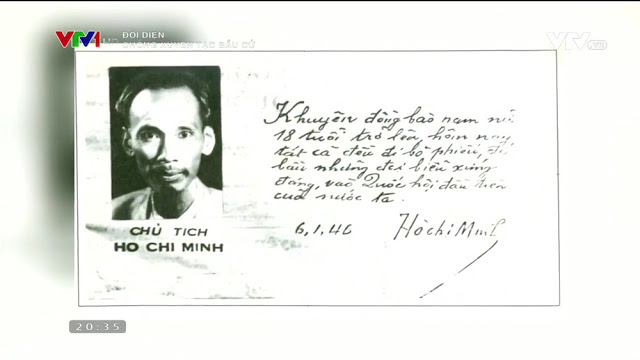 VTV1 ĐỐI DIỆN
CHỐNG XUYÊN TẠC BẦU CỬ
VTV.vn
Khuyên đồng bào nam nữ
18 tuổi trở lên hôm nay
tất cả đều đi bỏ phiếu, để
bầu những đại biểu xứng
đáng, vào Quốc hội đầu tiên
của nước ta.
6.1.46 HồchíMinh
CHỦ TỊCH
HO CHI MINH
20:35